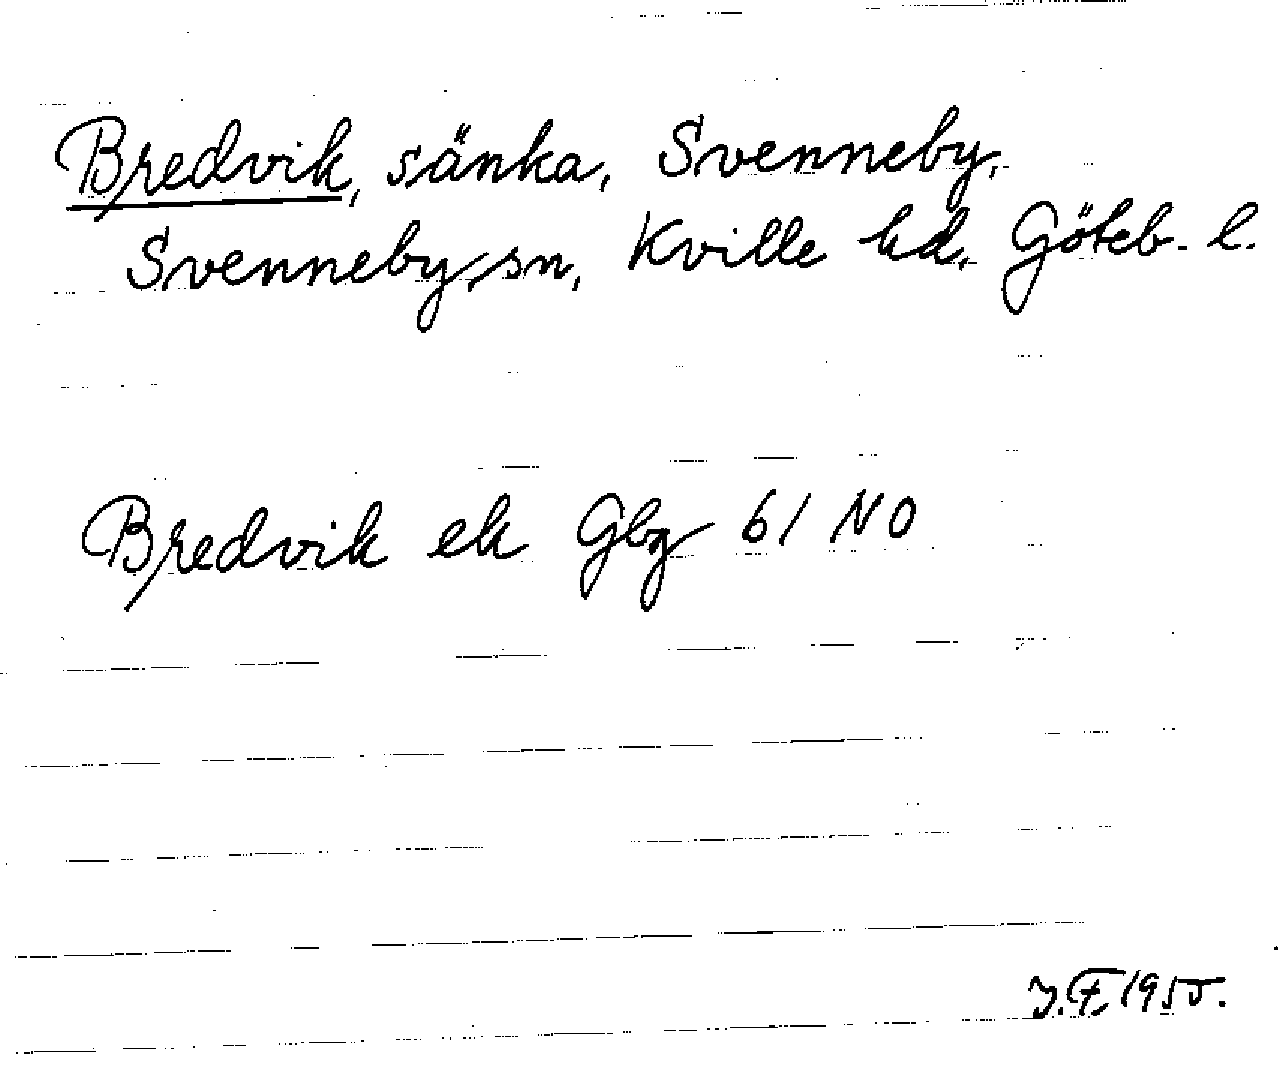 Bredvik, sänka, Svenneby,
Svenneby sn, Kville hd, Göteb. l.
Bredvik ek Gbg 61 NO
J.F. 1955.